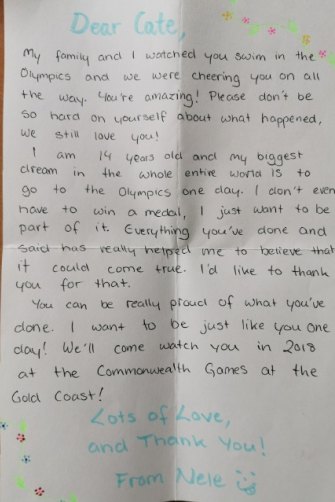 Dear Cate,
My family and I watched you swim in the
Olympics and we were cheering you on all
the way. You're amazing! Please don't be
so hard on yourself about what happened,
we still love you!
I am 14 years old and my biggest
dream in the whole entire world is to
go to the Olympics one day. I don't even
have to win a medal, I just want to be
part of it. Everything you've done and
said has really helped me to believe that
it could come true. I'd like to thank
you for that.
You can be really proud of what you've
done. I want to be just like you one
day! We'll come watch you in 2018
at the Commonwealth Games at the
Gold Coast!
Lots of Love,
and Thank You!
From Nele